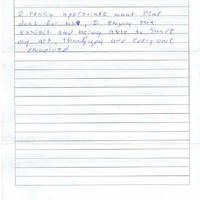 I really appreciate what PCAP
does for us, I enjoy the
exhibit and being able to share
my art, thank you and everyone
involved